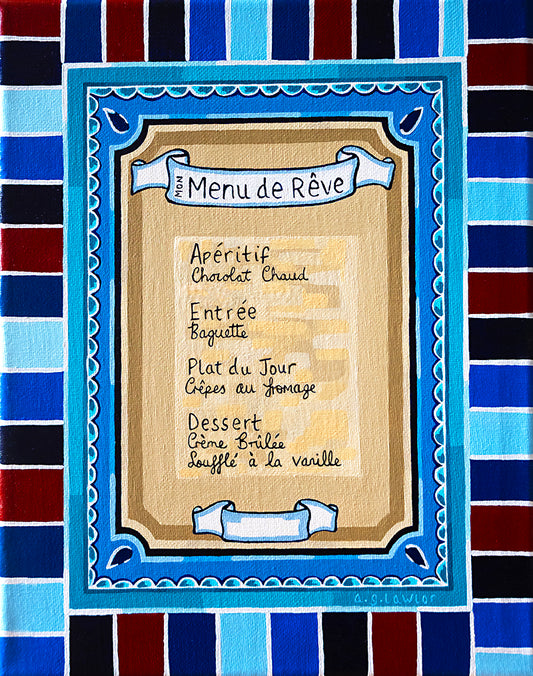 MON
Menu de Rêve
Apéritif
Chocolat Chaud
Entrée
Baguette
Plat du Jour
Crêpes au fromage
Dessert
Crème Brûlée
Soufflé à la vanille
a.g.lawlor